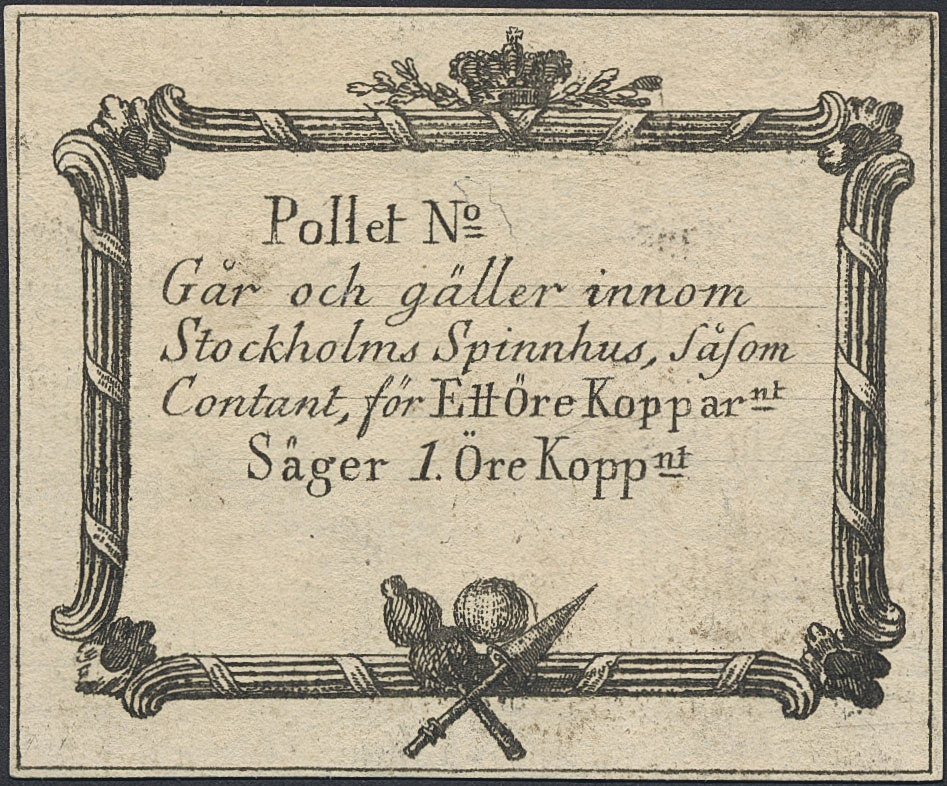 Pollet Nº
Går och gäller innom
Stockholms Spinnhus, ſåſom
Contant, för Ett Öre Koppar nt
Säger 1. Öre Kopp nt